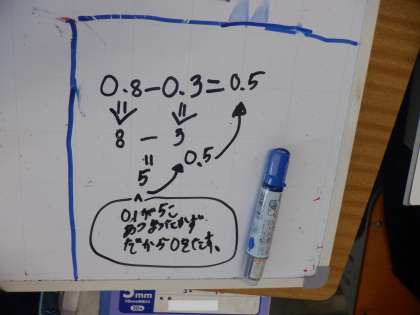 0.8-0.3=0.5
8 - 3
=
5
0.5
0.1が5こ
あつまったかず
だから0.5です。
5mm